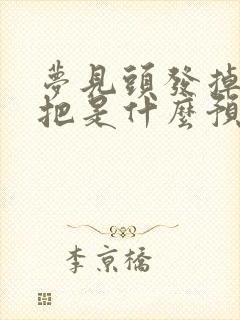 夢見頭發掉
把是什麼預
李京橋